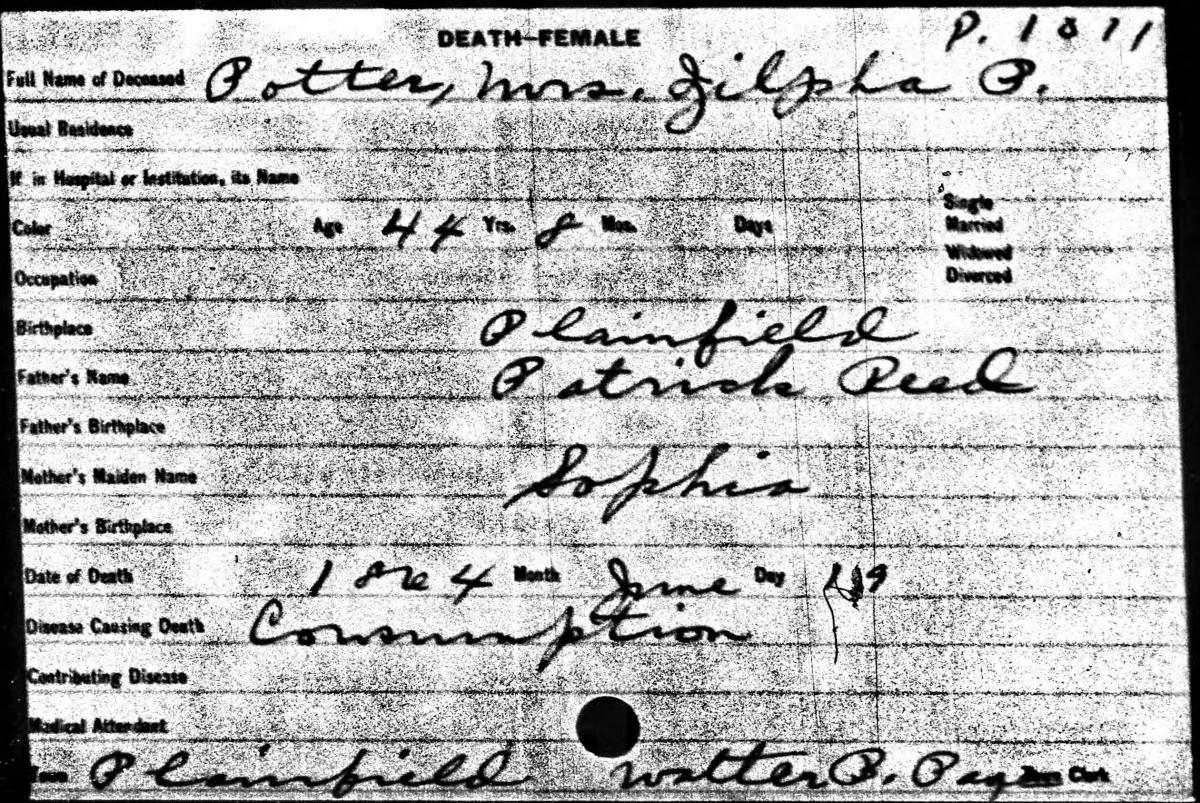 DEATH—FEMALE P. 1871
Full Name of Deceased Potter, Mrs. Zilpha P.
Usual Residence
If in Hospital or Institution, its Name
Color Age 44 Yrs. 8 Mos. Days
Single
Married
Widowed
Divorced
Occupation
Birthplace Plainfield
Father's Name Patrick Reed
Father's Birthplace
Mother's Maiden Name Sophia
Mother's Birthplace
Date of Death Month June Day
Disease Causing Death Consumption
Contributing Disease
Medical Attendant
Town Plainfield Walter B. Town Clerk